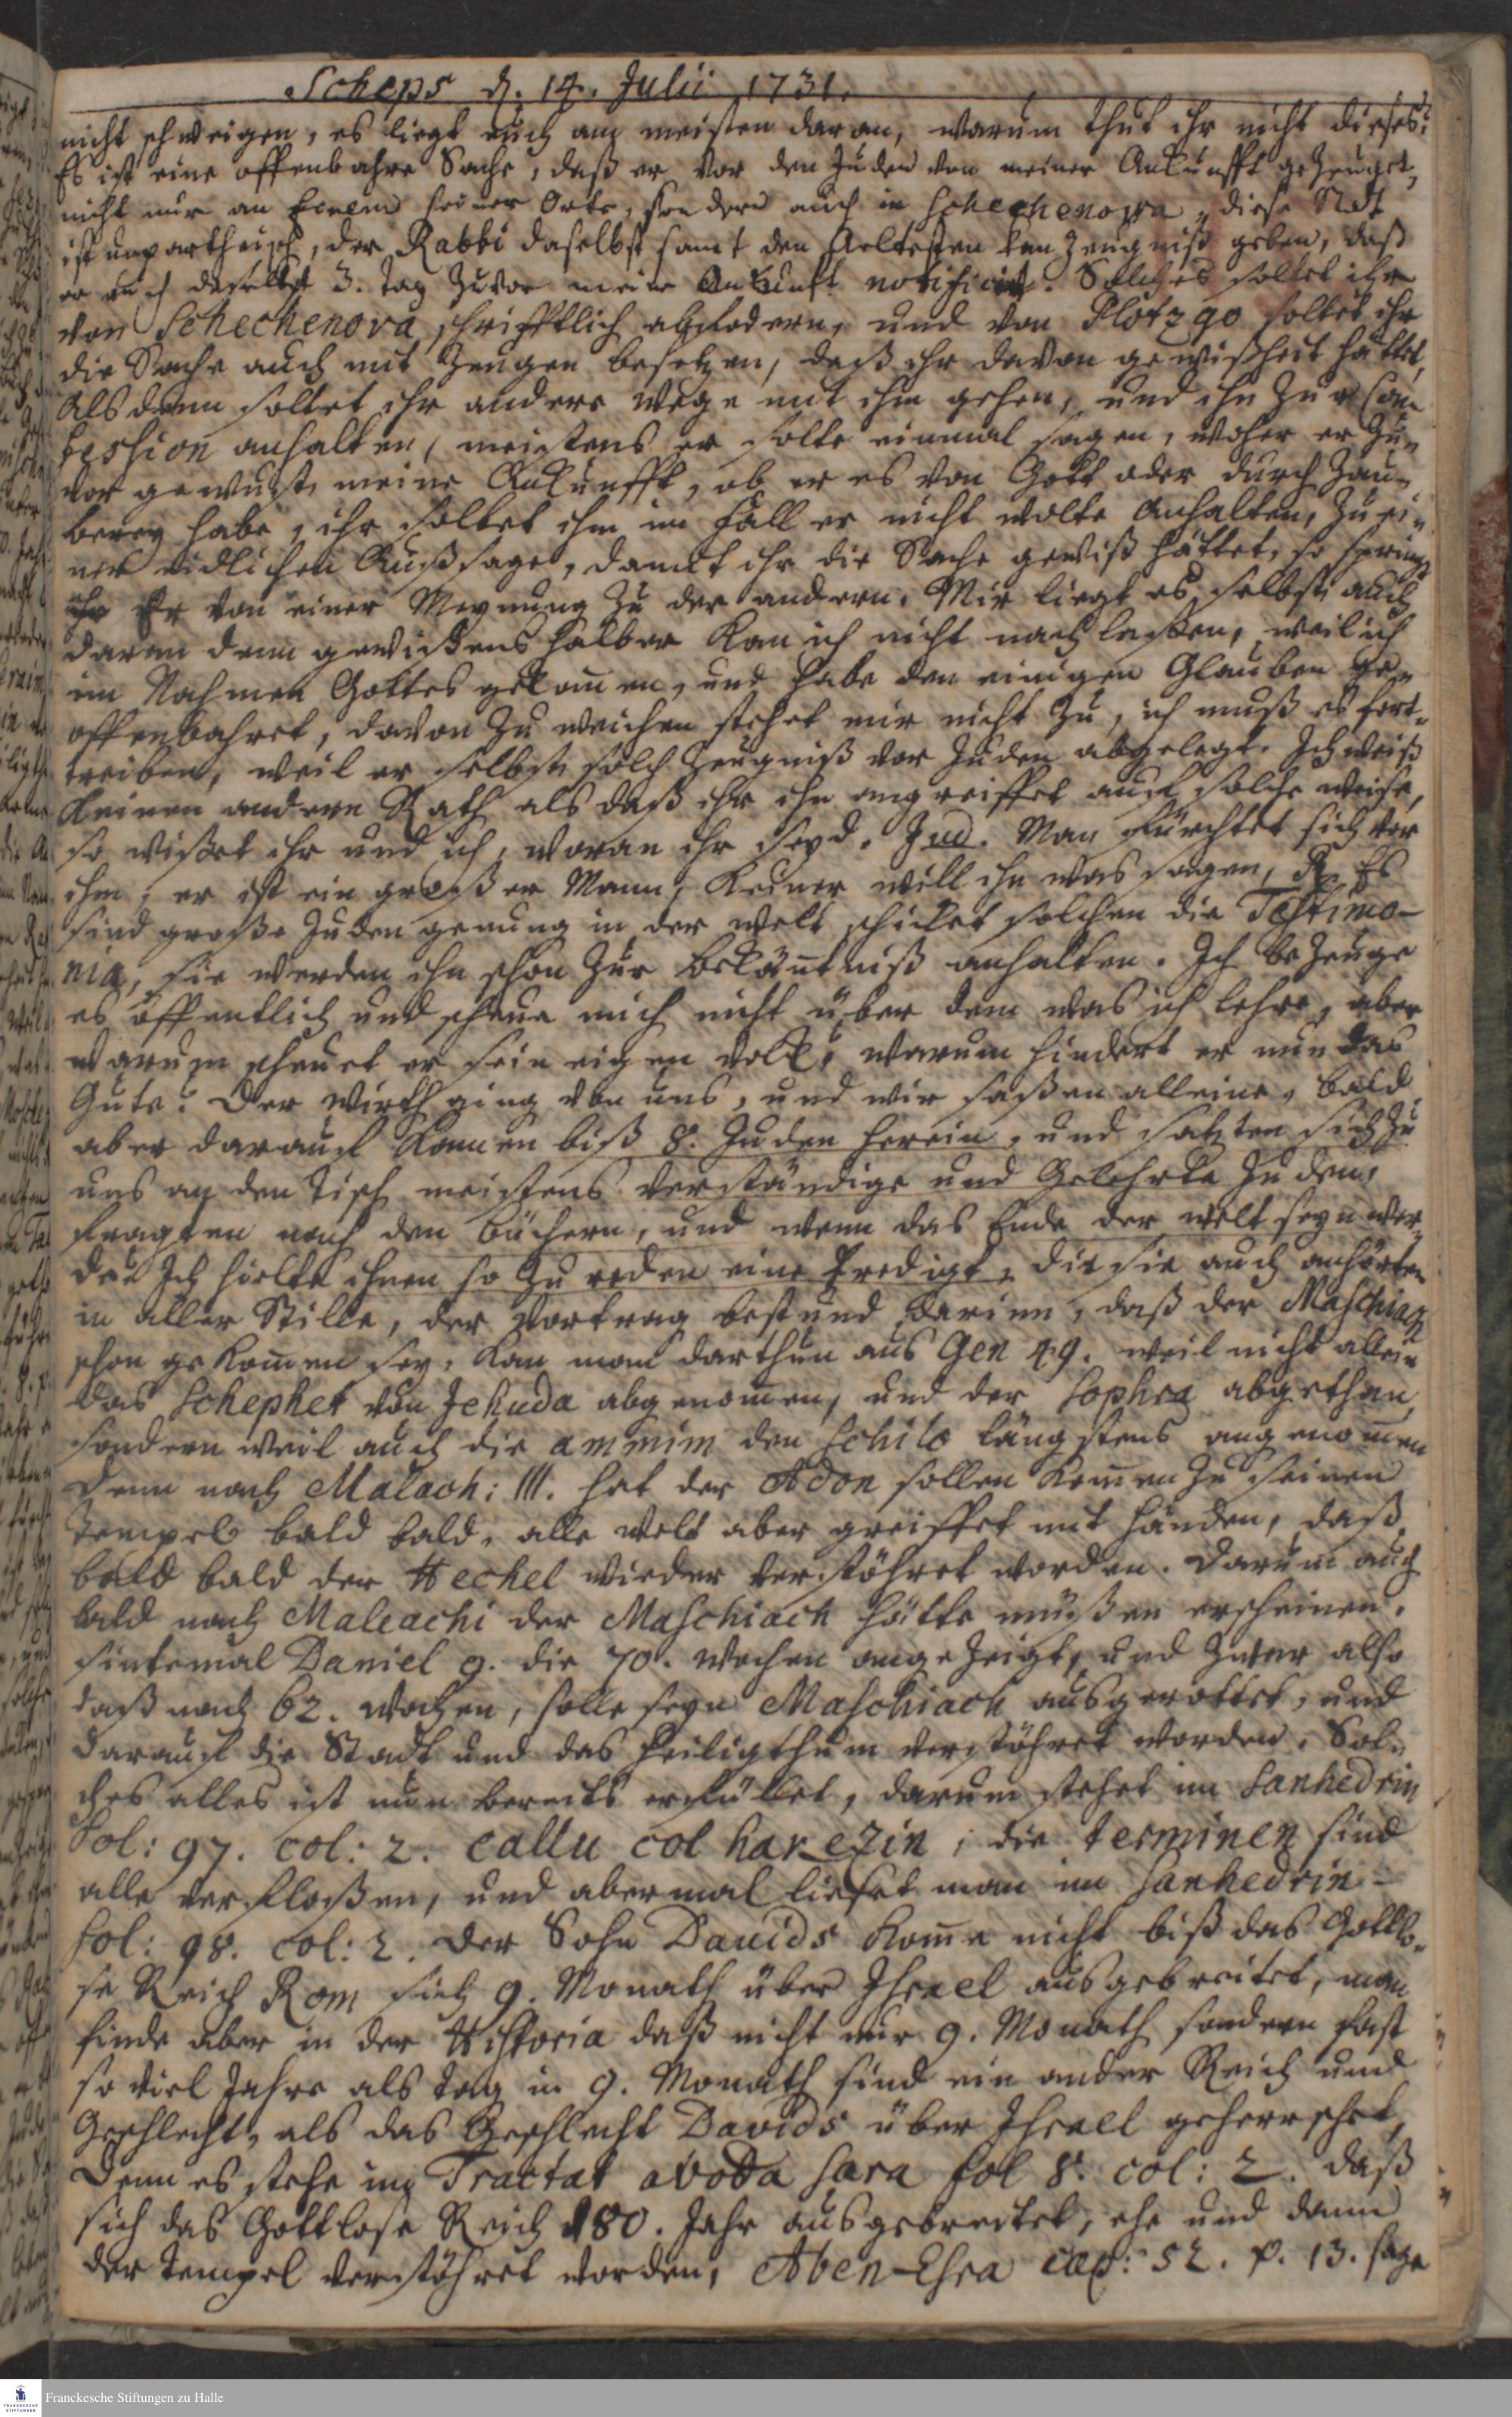 Scheps d. 14. Julii 1731.
nicht schweigen, es liegt euch am meisten daran, warum thut ihr nicht dieses?
Es ist eine offenbahre Sache, daß er vor den Juden von meiner Ankunfft gezeuget,
nicht nur an seiner Orte, sondern auch in Schechenova, diese Stdt
ist unpartheyisch, der Rabbi daselbst samt den Aeltesten kan Zeugniß geben, daß
er auch daselbst 3. Tag zuvor meine Ankunft notificirt. Solches soltet ihr
von Schechenova schrifftlich abfodern, und von Plotzgo soltet ihr
die Sache auch mit Zeugen besetzen, daß ihr davon gewißheit hättet,
Alsdenn soltet ihr andere Wege mit ihm gehen, und ihn zur Con-
fession anhalten, meistens er solte einmal sagen, woher er zu-
vor gewust meine Ankunfft, ob er es von Gott oder durch Zau-
berey habe, ihr soltet ihm im fall er nicht wolte anhalten, zu ei-
ner eidlichen Außsage, damit ihr die Sache gewiß hättet, so springt
ihr von einer Meynung zu der andern. Mir liegt es selbst auch
daran denn gewissens halber kan ich nicht nachlassen, weil ich
im Nahmen Gottes gekommen, und habe den einigen Glauben ge-
offenbahret, davon zu weichen stehet mir nicht zu, ich muß es fort-
treiben, weil er selbst solch Zeugniß vor Juden abgelegt. Ich weiß
keinen andern Rath als daß ihr ihn angreiffet auf solche weise,
so wisset ihr und ich, woran ihr seyd. Jud. Man fürchtet sich vor
ihm, er ist ein grosser Mann, keiner will ihn was sagen, R. Es
sind große Juden genung in der welt schicket solchen die Testimo-
nia, sie werden ihn schon zur bekäntniß anhalten. Ich bezeuge
es öffentlich und scheue mich nicht über dem was ich lehre, aber
warum scheuet er sein eigen volk? warum hindert er nun das
Gute? Der Wirth ging von uns, und wir saßen alleine, bald
aber darauf kamen biß 8. Juden herein, und satzten sich zu
uns an den Tisch meistens verständige und Gelehrte Juden,
fragten nach den büchern, und wenn das Ende der welt seyn wer-
de? Ich hielte ihnen so zu reden eine Predigt, die sie auch anhörten
in aller Stille, der Vortrag bestund darinn, daß der Maschiach
schon gekommen sey, kan man darthun aus Gen 49. weil nicht allein
das Schephet von Jehuda abgenommen, und der Sophra abgethan
sondern weil auch die ammim den Schilo längstens angenommen
Denn nach Malach: III. hat der Adon sollen kommen zu seinen
Tempel bald bald, alle welt aber greiffet mit händen, daß
bald bald der Hechel wieder verstöhret worden. Darum auch
bald nach Maleachi der Maschiach hätte müßen erscheinen.
sintemal Daniel 9. die 70. wochen angezeigt, und zwar also
daß nach 62. wochen, solle seyn Maschiach ausgerottet, und
darauf die Stadt und das Heiligthum verstöhret worden. Sol-
ches alles ist nun bereits erfüllet, darum stehet im Sanhedrin
Fol: 97. col: 2. callu col hakezin, die terminen sind
alle verfloßen, und abermal lieset man im Sanhedrin
fol: 98. col: 2. Der Sohn Davids komme nicht biß das Gottlo-
se Reich Rom sich 9. Monath über Jsrael ausgebreitet, man
finde aber in der Historia daß nicht nur 9. Monath sondern fast
so viel Jahre als Tag in 9. Monath sind ein ander Reich und
Geschlecht, als das Geschlecht Davids über Jsrael geherrschet,
Denn es stehe im Tractat avoda sara fol 8. col: 2. daß
sich das Gottlose Reich 180. Jahr ausgebreitet, ehe und denn
der Tempel verstöhret worden, Aben-Esra cap: 52. v. 13. sage
Franckesche Stiftungen zu Halle